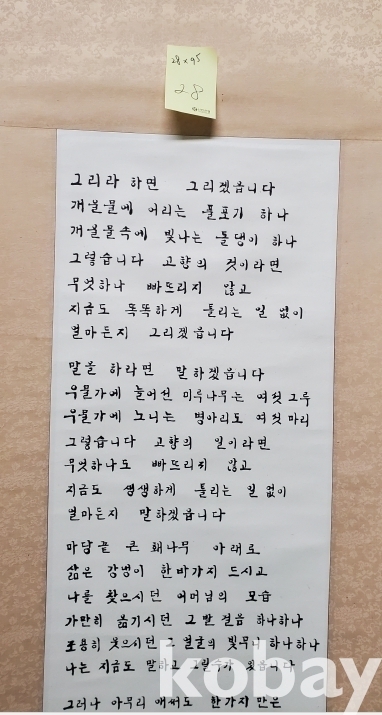 28 x 95
28
그리라 하면 그리겠읍니다
개울물에 어리는 풀포기 하나
개울물속에 빛나는 돌멩이 하나
그렇습니다 고향의 것이라면
무엇하나 빠뜨리지 않고
지금도 똑똑하게 틀리는 일 없이
얼마든지 그리겠읍니다
말을 하라면 말하겠읍니다
우물가에 늘어선 미루나무는 여섯 그루
우물가에 노니는 병아리도 여섯 마리
그렇습니다 고향의 일이라면
무엇하나도 빠뜨리지 않고
지금도 생생하게 틀리는 일 없이
얼마든지 말하겠읍니다
마당끝 큰 홰나무 아래로
삶은 강냉이 한바가지 드시고
나를 찾으시던 어머님의 모습
가만히 옮기시던 그 발걸음 하나하나
조용히 웃으시던 그 얼굴의 빛무늬 하나하나
나는 지금도 말하고 그릴수가 있읍니다
그러나 아무리 애써도 한가지만은
kobay